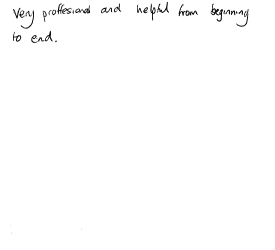 Very proffesional and helpful from beginning
to end.